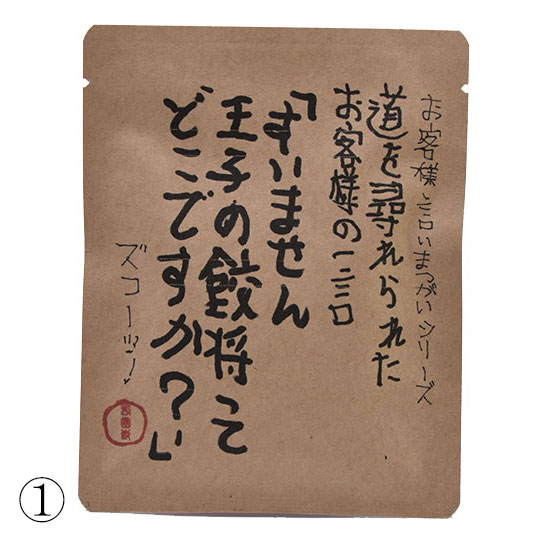 お客様言いまつがいシリーズ
道を尋ねられた
お客様の一言
「すいません
王子の餃将って
どこですか?」
ズコーッ!
①